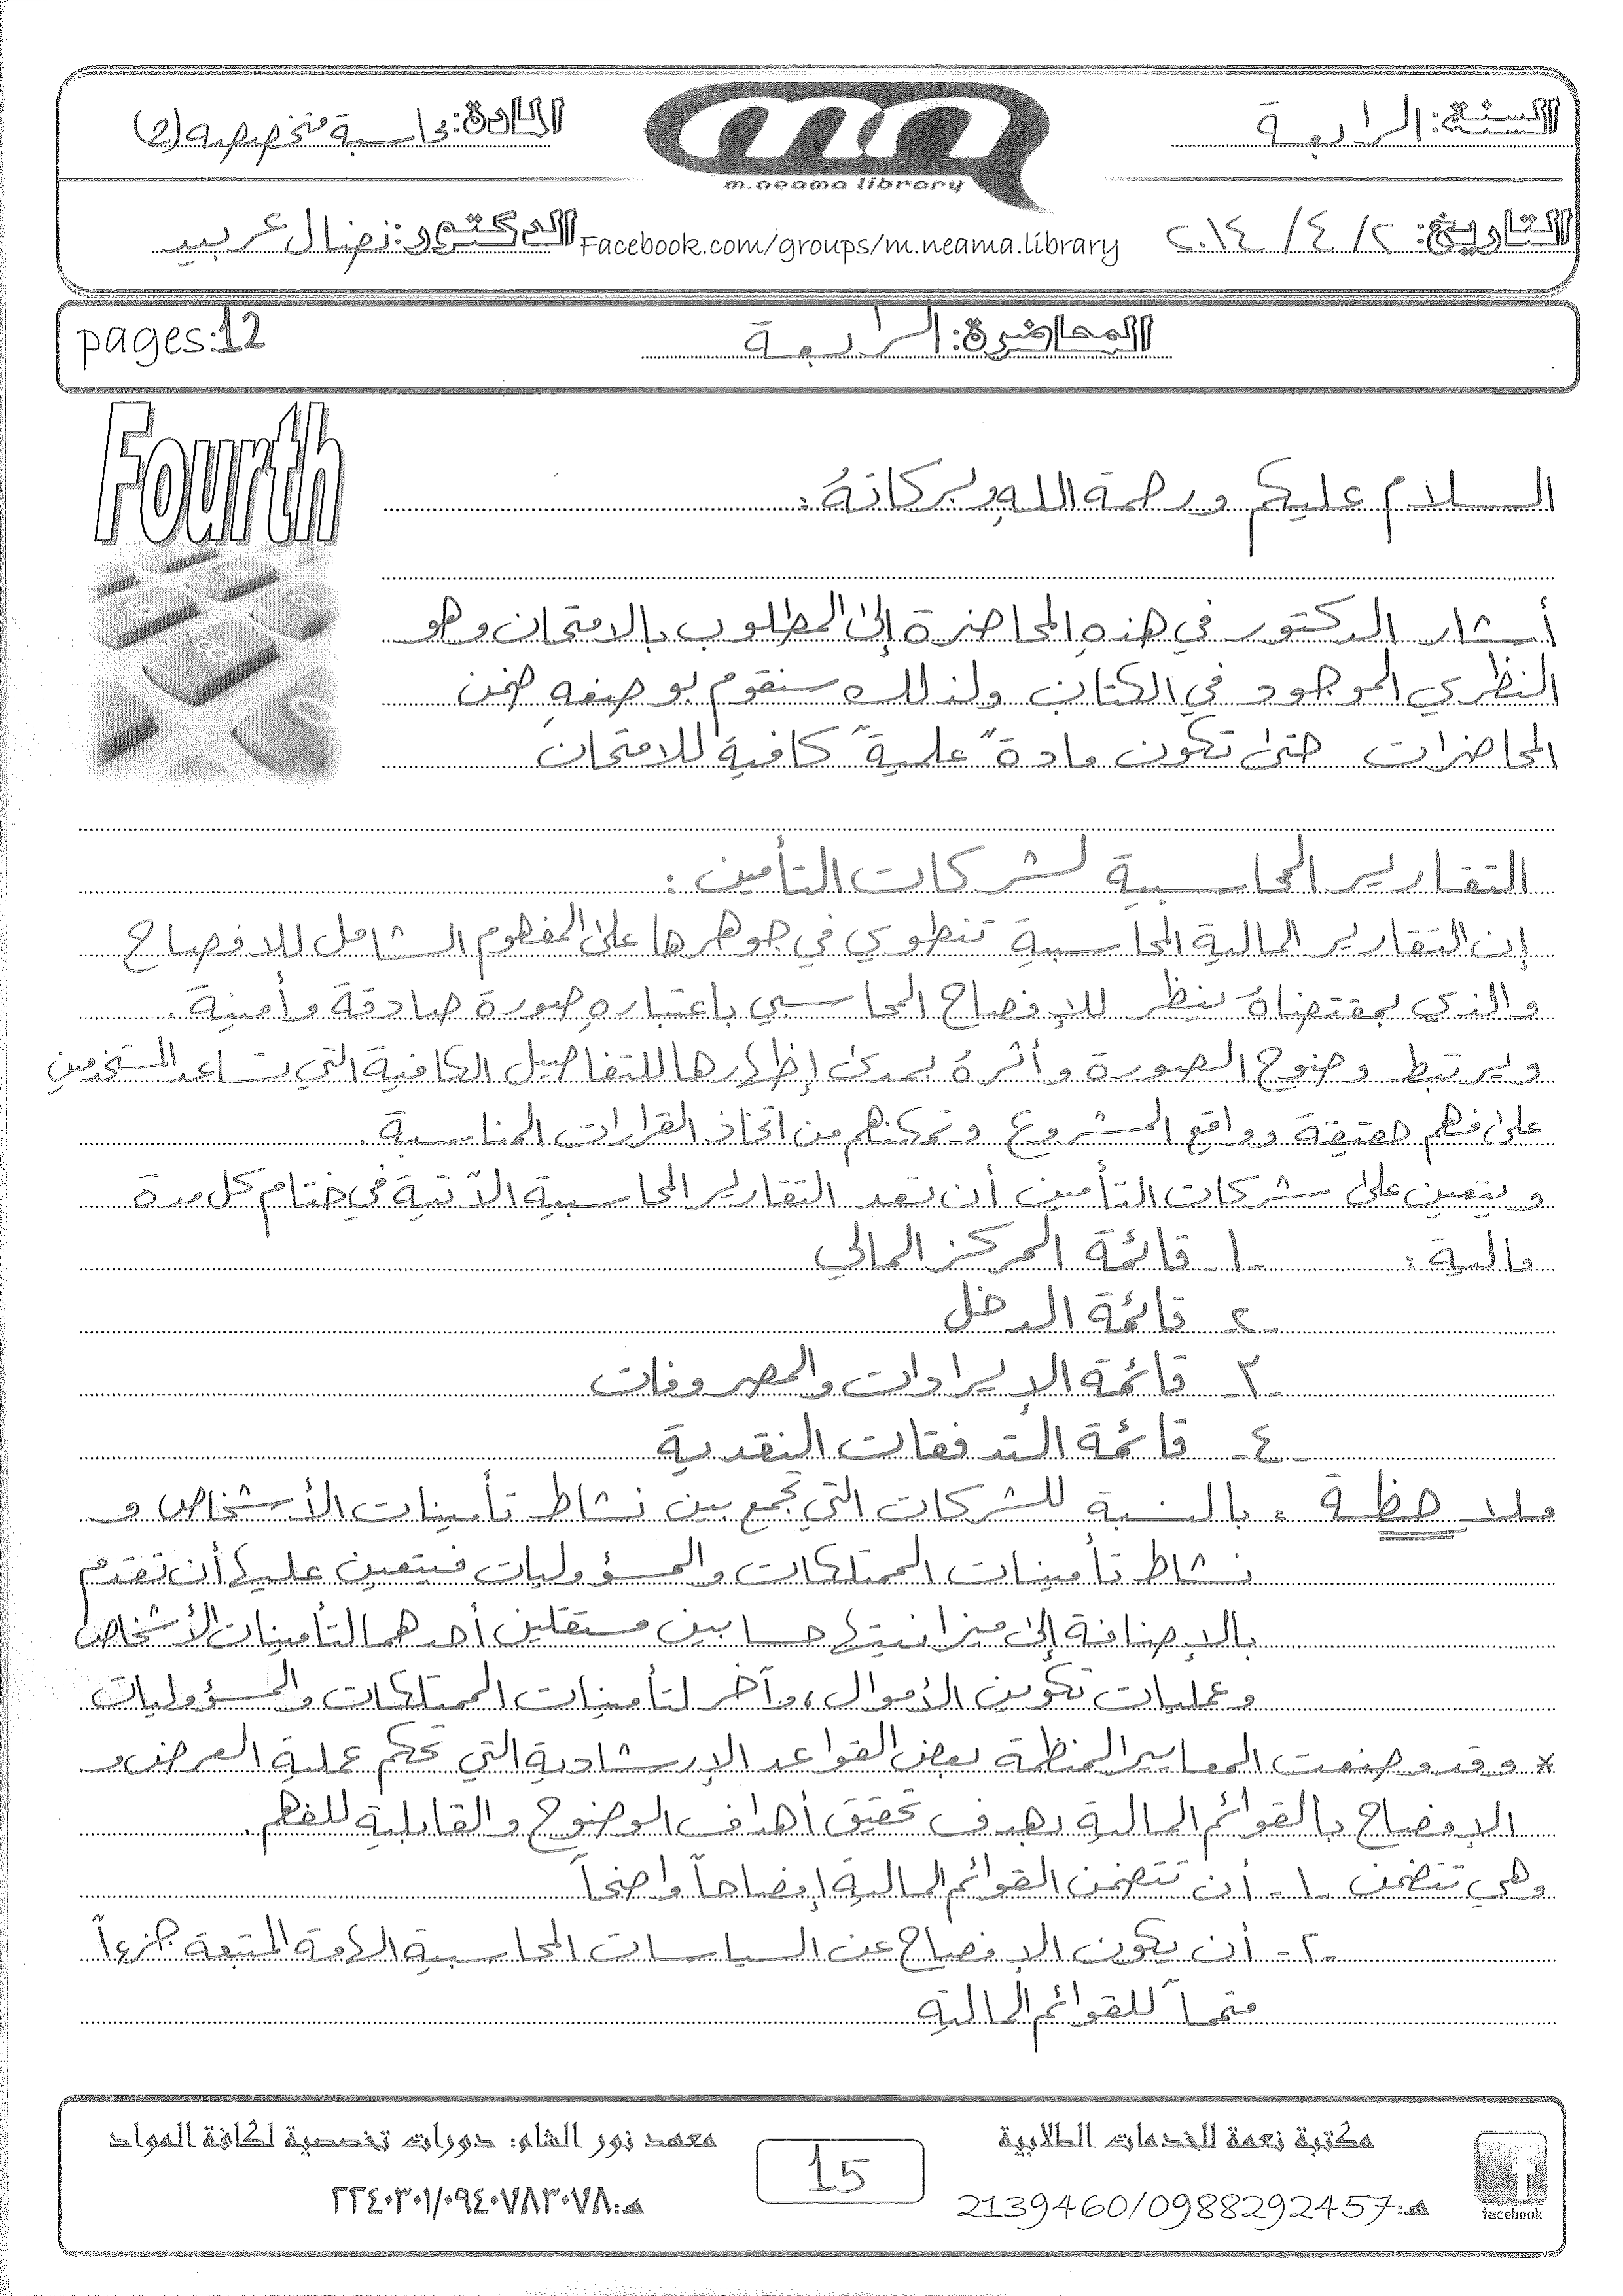 السنة: الرابعة
المادة: محاسبة متخصصة (2)
m.neama library
التاريخ: ٢ / ٤ / ٢٠١٤
Facebook.com/groups/m.neama.library
الدكتور: نضال عربيد
المحاضرة: الرابعة
pages:12
Fourth
السلام عليكم ورحمة اللهِ وبركاتهُ :
أشار الدكتور في هذهِ المحاضرة إلى المطلوب بالامتحان وهو
النظري الموجود في الكتاب ولذلك سنقوم بوضعهِ ضمن
المحاضرات حتى تكون مادة" علمية" كافية للامتحان
التقارير المحاسبية لشركات التأمين :
إن التقارير المالية المحاسبية تنطوي في جوهرها على المفهوم الشامل للافصاح
والذي بمقتضاهُ ينظر للإفصاح المحاسبي باعتبارهِ صورة صادقة وأمينة .
ويرتبط وضوح الصورة وأثرهُ بمدى إظهارها للتفاصيل الكافية التي تساعد المستخدمين
على فهم حقيقة وواقع المشروع وتمكنهم من اتخاذ القرارات المناسبة .
ويتعين على شركات التأمين أن تعد التقارير المحاسبية الآتية في ختام كل مدة
مالية : ١- قائمة المركز المالي
٢- قائمة الدخل
٣- قائمة الإيرادات والمصروفات
٤- قائمة التدفقات النقدية
ملاحظة : بالنسبة للشركات التي تجمع بين نشاط تأمينات الأشخاص و
نشاط تأمينات الممتلكات والمسؤوليات فيتعين عليها أن تقدم
بالإضافة إلى ميزانيتها حسابين مستقلين أحدهما لتأمينات الأشخاص
وعمليات تكوين الأموال ، وآخر لتأمينات الممتلكات والمسؤوليات
* وقد وضعت المعايير المنظمة بعض القواعد الإرشادية التي تحكم عملية العرض و
الإفصاح بالقوائم المالية بهدف تحقيق أهداف الوضوح والقابلية للفهم .
وهي تتضمن ١- أن تتضمن القوائم المالية إفصاحاً واضحاً
٢- أن يكون الإفصاح عن السياسات المحاسبية الهامة المتبعة جزءاً
متمماً للقوائم المالية
مكتبة نعمة للخدمات الطلابية
هـ:2139460/0988292457
facebook
15
معهد نور الشام: دورات تخصصية لكافة المواد
هـ:٢٢٤٠٣٠١/٠٩٤٠٧٨٣٠٧٨